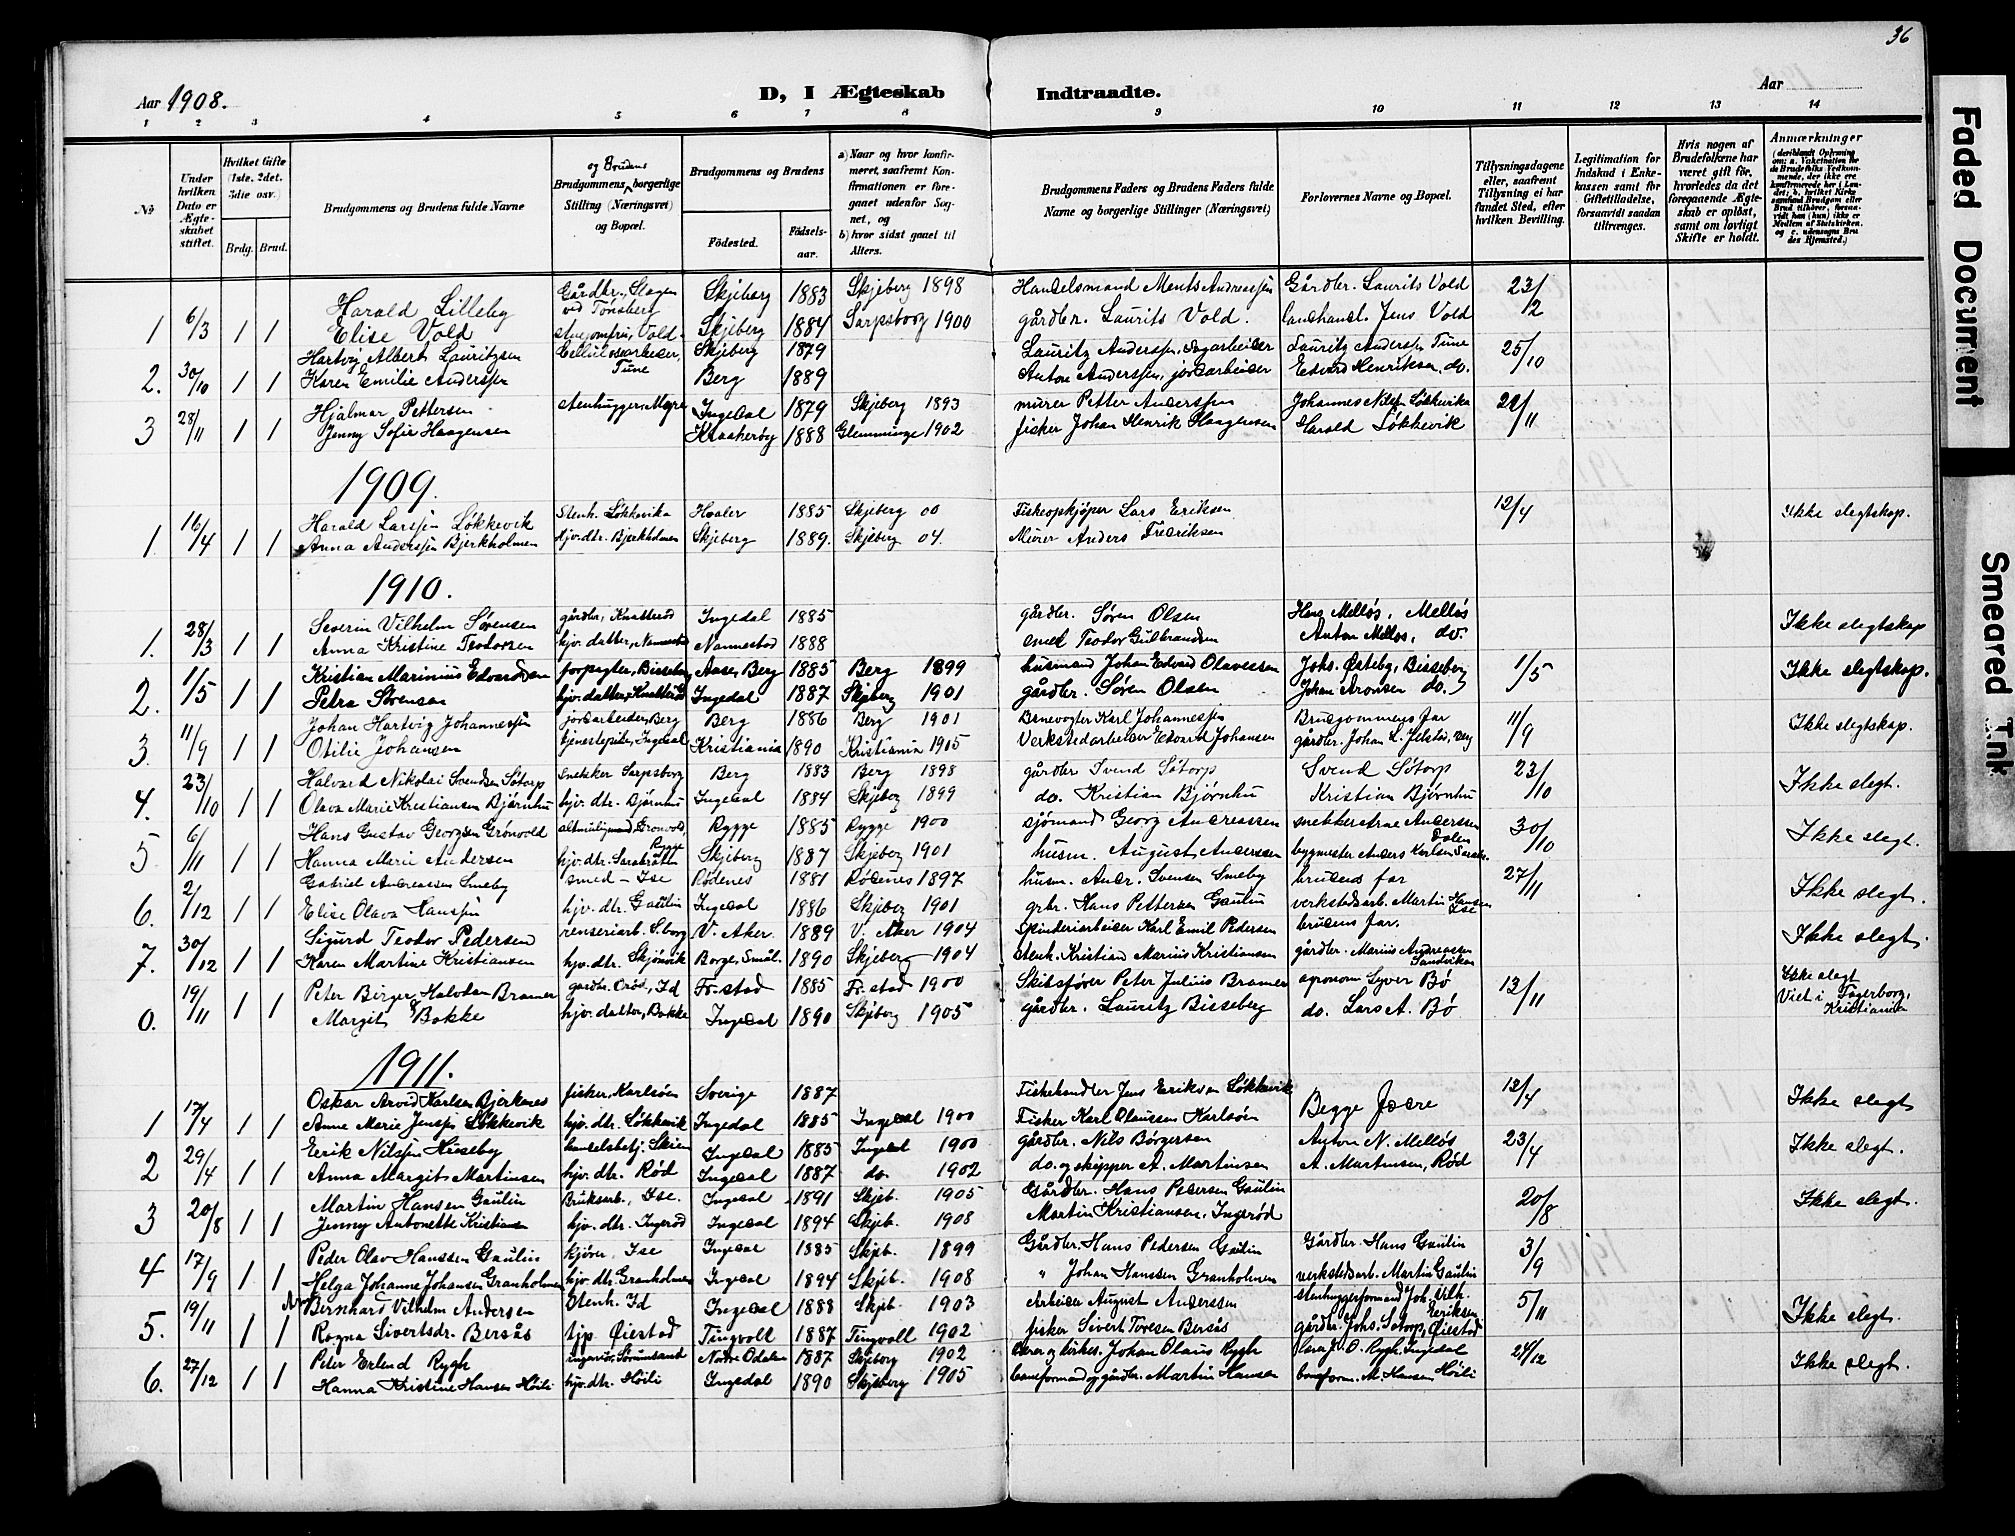 36
Aar 1908.
D, I Ægteskab Indtraadte.
Aar
1 2 3 4 5 6 7 8 9 10 11 12 13 14
№
Under hvilken Dato er Ægteskabet stiftet.
Hvilket Gifte (1ste, 2det, 3die osv.)
Brdg. Brud.
Brudgommens og Brudens fulde Navne
Brudgommens og Brudens borgerlige Stilling (Næringsvei) og Bopæl.
Brudgommens og Brudens
Fødested. Fødselsaar.
a) Naar og hvor konfirmeret, saafremt Konfirmationen er foregaaet udenfor Sognet, og
b) hvor sidst gaaet til Alters.
Brudgommens Faders og Brudens Faders fulde Navne og borgerlige Stillinger (Næringsvei)
Forlovernes Navne og Bopæl.
Tillysningsdagene eller, saafremt Tillysning ei har fundet Sted, efter hvilken Bevilling.
Legitimation for Indskud i Enkekassen samt for Giftetilladelse, forsaavidt saadan tiltrænges.
Hvis nogen af Brudefolkene har været gift før, hvorledes da det foregaaende Ægteskab er opløst, samt om lovligt Skifte er holdt.
Anmærkninger (deriblandt Oplysning om: a. Vakcination for de Brudefolks Vedkommende, der ikke ere konfirmerede her i Landet; b. hvilket Kirkesamfund Brudgom eller Brud tilhører, forsaavidt han (hun) ikke er Medlem af Statskirken, og c. udensogns Brudes Hjemsted.)
Harald Lilleby Gårdbr., Slagen ved Tønsberg Skjeberg 1883 Skjeberg 1898 Handelsmand Ments Andreassen Gårdbr. Laurits Vold 23/2
1 6/3 1 1 Elise Vold Vold Skjeberg 1884 Sarpsborg 1900 gårdbr. Laurits Vold. Landhandl. Jens Vold
Hartvig Albert Lauritzsen Cellulosearbeider, Tune Skjeberg 1879 Lauritz Anderssen, Sagarbeider Lauritz Anderssen Tune 25/10
2. 30/10 1 1 Karen Emilie Anderssen Berg 1889 Anton Anderssen, jordarbeider Edvard Henriksen, do.
Hjalmar Pettersen Stenhugger, Ingedal 1879 Skjeberg 1893 murer Petter Anderssen Johannes Nilssen Løkkevika 21/11
3 28/11 1 1 Jenny Sofie Haagensen Kraakerøy 1888 Glemminge 1902 fisker Johan Henrik Haagensen Harald Løkkevik
1909.
Harald Larssen Løkkevik Stenh. Løkkevika Hvaler 1885 Skjeberg 00 Fiskeopkjøper Lars Eriksen 12/4 Ikke slegtskap.
1. 16/4 1 1 Anna Anderssen Bjerkholmen hjv. dtr. Bjerkholmen Skjeberg 1889. Skjeberg 04. Murer Anders Fredriksen
1910.
Severin Vilhelm Sørensen gårdbr, Knatterød Ingedal 1885 gårdbr. Søren Olsen Hans Melløs, Melløs Ikke slegtskap
1. 28/3 1 1 Anna Kristine Teodorsen hjv. datter, Nannestad Nannestad 1888 smed Teodor Gulbrandsen Anton Melløs, do.
Kristian Marinius Edvardsen forpagter, Bisseberg Aase, Berg 1885 Berg 1899 husmand Johan Edvard Olavessen Johs. Østeby, Bisseberg 1/5 Ikke slegtskap.
2. 1/5 1 1 Petra Sørensen hjv. datter, Knatterød Ingedal 1887 Skjeberg 1901 gårdbr. Søren Olsen Johan Aronsen do.
Johan Hartvig Johannessen jordarbeider, Berg Berg 1886 Berg 1901 Banevogter Karl Johannessen Brudgommens far 11/9 Ikke slegtskap.
3. 11/9 1 1 Otilie Johansen tjenestepike, Ingedal Kristiania 1890 Kristiania 1905 Verkstedarbeider Edvard Johansen gårdbr. Johan L.
Halvard Nikolai Svendsen Søtorp Snekker Sarpsborg Berg 1883 Berg 1898 gårdbr Svend Søtorp Svend Søtorp 23/10 Ikke slegt.
4. 23/10 1 1 Olava Marie Kristiansen Bjørnhu hjv. dtr. Bjørnhu Ingedal 1884 Skjeberg 1899 do. Kristian Bjørnhu Kristian Bjørnhu
Hans Gustav Georgsen Grønvold altmuligmand, Grønvold, Rygge Rygge 1885 Rygge 1900 sjømand Georg Andreassen Anderssen Dalen 30/10 Ikke slegt.
5 6/11 1 1 Hanna Marie Andersen hjv. dtr. Skjeberg 1887 Skjeberg 1901 husm. August Anderssen bygmester Anders Karlsen
Gabriel Andreassen Smeby smed – Ise Rødenes 1881 Rødenes 1897 husm. Andr. Svensen Smeby brudens far 27/11 Ikke slegt.
6. 2/12 1 1 Elise Olava Hanssen hjv. dtr. Gaulin Ingedal 1886 Skjeberg 1901 grbr. Hans Pettersen Gaulin verkstedsarb. Martin Hansen Ise
Sigurd Teodor Pedersen renseriarb. S.borg V. Aker. 1889 V. Aker 1904 Spinderiarbeider Karl Emil Pedersen brudens far. Ikke slegt.
7. 30/12 1 1 Karen Martine Kristiansen hjv. dtr. Skjønvik Borge, Smål. 1890 Skjeberg 1904 Stenh. Kristian Marius Kristiansen gårdbr. Marius Andreassen Sandviken
Peter Birger Halvdan Bramer gardbr. Orød, Id Fr.stad 1885 Fr.stad 1900 Skibsfører Peter Julius Bramer agronom Syver Bø 13/11 Ikke slegt Viet i Fagerborg, Kristiania
0. 19/11 1 1 Margit Bakke hjv. datter, Bakke Ingedal 1890 Skjeberg 1905 gårdbr. Lauritz Bisseberg do. Lars A. Bø
1911.
Oskar Arvid Karlsen Bjerkenes fisker, Karlsøen Sverige 1887 Fiskehandler Jens Eriksen Løkkevik 12/4 Ikke slegt
1 17/4 1 1 Anne Marie Jenssen Løkkevik hjv. dtr. Løkkevik Ingedal 1885 Ingedal 1900 Fisker Karl Olaussen Karlsøen Begge fædre
Eerik Nilssen Hisseby handelsbetj. Skien Ingedal 1885 Ingedal 1900 gårdbr. Nils Børgersen Anton N. Melløs 23/4 Ikke slegt.
2 29/4 1 1 Anna Margit Martinsen hjv. dtr. Rød Ingedal 1887 do. 1902 do. og skipper A. Martinsen A. Martinsen, Rød
Martin Hansen Gaulin Bruksarb., Ise. Ingedal 1891 Skjeb. 1905 Gårdbr. Hans Pedersen Gaulin 20/8 Ikke slegt.
3 20/8 1 1 Jenny Antonette Kristiansen hjv. dtr. Ingerød Ingedal 1894 Skjeb. 1908 Martin Kristiansen, Ingerød
Peder Olav Hanssen Gaulin kjører, Ise Ingedal 1885 Skjeb. 1899 Gårdbr. Hans Pedersen Gaulin Gårdbr. Hans Gaulin 3/9
4 17/9 1 1 Helga Johanne Johansen Granholmen hjv. dtr. Granholmen Ingedal 1894 Skjeb. 1908 " Johan Hanssen Granholmen verkstedsarb. Martin Gaulin
Bernhard Vilhelm Andersen Stenh. Id Ingedal 1888 Skjeb. 1903 Arbeider August Anderssen stenhuggerformand Joh. Vilh. Eeriksen 5/11 Ikke slegt.
5. 19/11 1 1 Ragna Sivertsdr. Bersås tjp. Øiestad Tingvoll 1887 Tingvoll 1902 fisker Sivert Toresen Bersås gårdbr. Johs. Søtorp, Øiestad
Peter Erlend Rygh ingeniør, Sørumsand Nordre Odalen 1887 Skjeberg 1902 Lærer og kirkes. Johan Olaus Rygh Lærer J. O. Rygh, Ingedal 24/12 Ikke slegt.
6. 27/12 1 1 Hanna Kristine Hansen Høili hjv. dtr. Høili Ingedal 1890 Skjeberg 1905 baneformand og gårdbr. Martin Hansen baneform. M. Hansen Høili
Faded Document
Smeared Ink